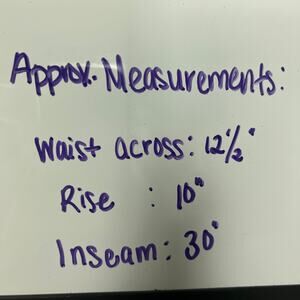 Approx. Measurements:
Waist across: 12½"
Rise : 10"
Inseam: 30"